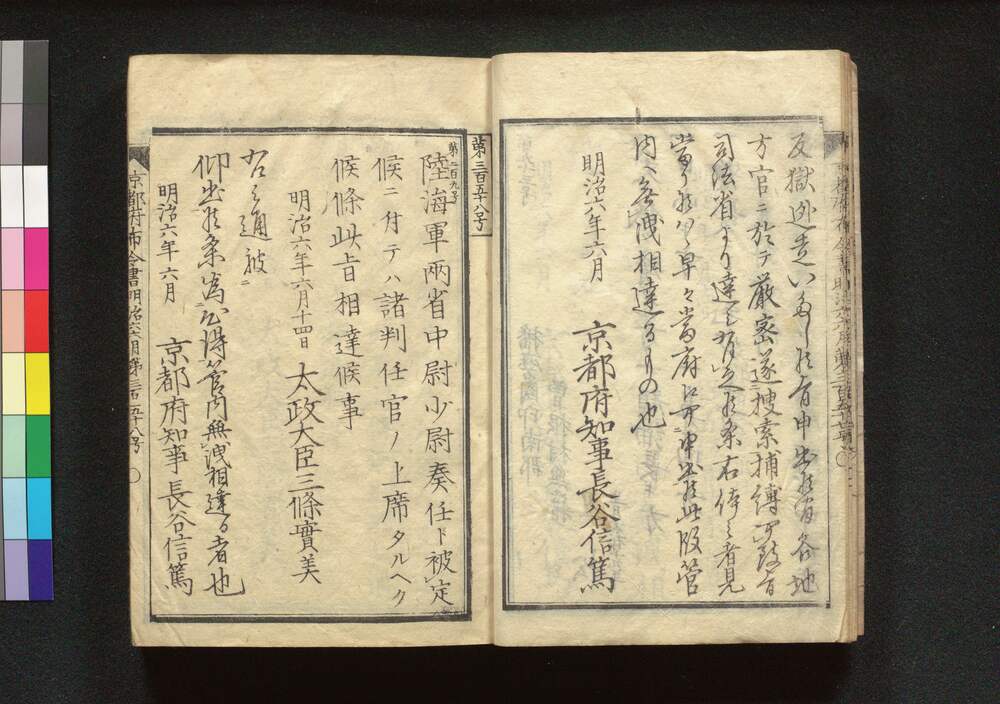 反獄逃走いたし候旨申出候間各地
方官ニ於テ厳密遂捜索捕縛可致旨
司法省より達之旨有之候条右体之者見
当り候ハヽ早々当府江可申出候此段管
内へ無洩相達するもの也
明治六年六月
京都府知事長谷信篤
第三百五十八号
第二百九号
陸海軍兩省中尉少尉奏任ト被定
候ニ付テハ諸判任官ノ上席タルヘク
候條此旨相達候事
明治六年六月十四日
太政大臣三條實美
右之通被
仰出候条為心得管内無洩相達る者也
明治六年六月
京都府知事長谷信篤
京都府布令書明治六年六月第三百五十八号